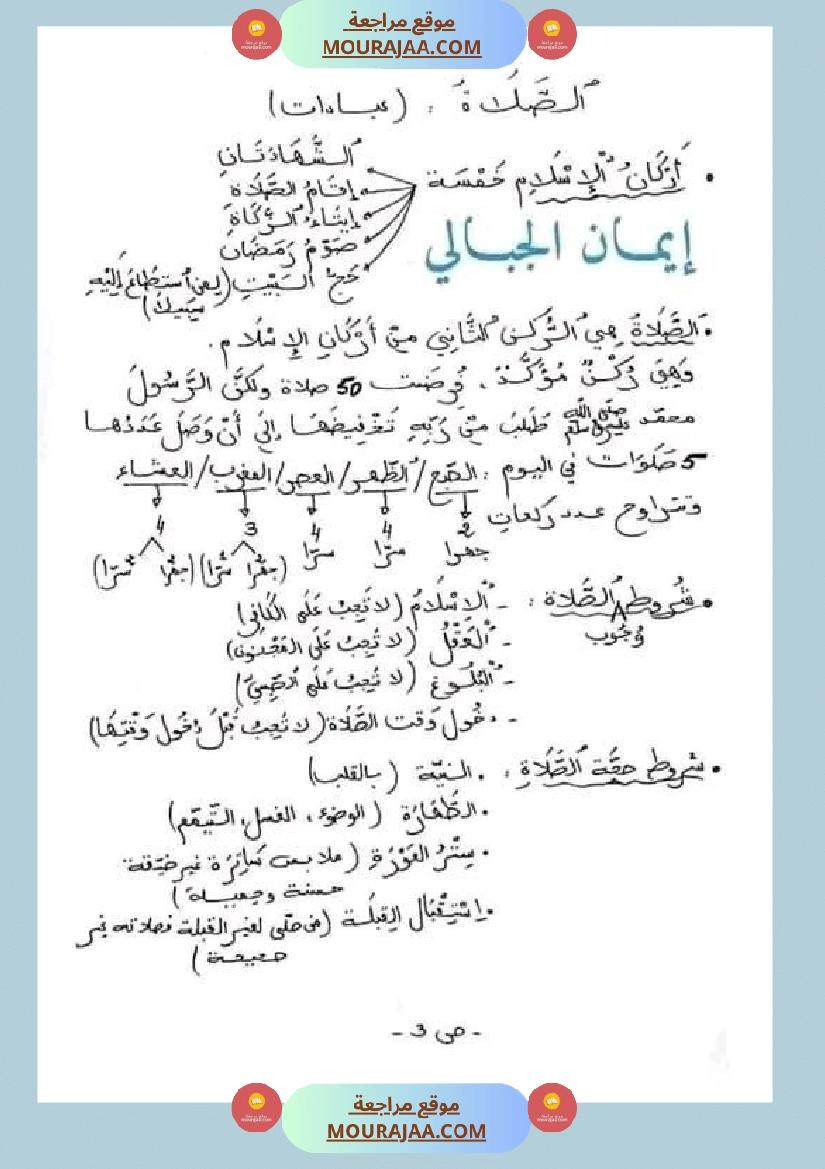 موقع مراجعة
MOURAJAA.COM
الصَّلَاةُ : (عبادات)
• أَرْكَانُ الإِسْلَامِ خَمْسَة
الشَّهَادَتَانِ
إِقَامُ الصَّلَاة
إِيتَاءُ الزَّكَاةِ
صَوْمُ رَمَضَان
حَجُّ البَيْتِ (لِمَن اسْتَطَاعَ إِلَيْهِ
سَبِيلًا)
إيمان الجبالي
• الصَّلَاةُ هِيَ الرُّكْنُ الثَّانِي مِنْ أَرْكَانِ الإِسْلَامِ .
وَهِيَ رُكْنٌ مُؤَكَّدٌ . فُرِضَت 50 صلاة ولكنَّ الرَّسُولُ
محمّد صلى الله عليه وسلم طَلَبَ مِنْ رَبِّهِ تَخْفِيضَهَا إِلَى أَنْ وَصَلَ عَدَدُهَا
5 صَلَوَات في اليوم : الصّبح / الظّهر / العصر / المغرب / العشاء
وتتراوح عدد ركعاتِ
2 4 4 3 4
جهرا سرّا سرّا (جهْرًا سرّا) (جهْرًا سرّا)
• شُروط وُجُوب الصَّلَاة :
- الإسْلَامُ (لا تَجِبُ عَلَى الكَافِرِ)
- العَقْلُ (لا تَجِبُ عَلَى المَجْنُون)
- البُلُوغ (لا تَجِبُ عَلَى الصَّبِيِّ)
- دخُول وَقت الصَّلَاة (لا تَجِبُ قَبْلَ دُخُول وَقْتِهَا)
• شروط صِحَّة الصَّلَاةِ :
• النيّة (بالقلب)
• الطَّهَارَة (الوضوء ، الغسل، التّيمّم)
• سِتْرُ العَوْرَةِ (ملابس سَاتِرَة غير ضيّقة
حسنة وجميلة)
• اِسْتِقْبَال القِبْلَة (من صلّى لغير القبلة فصلاته غير
صحيحة)
- ص 3 -
موقع مراجعة
MOURAJAA.COM